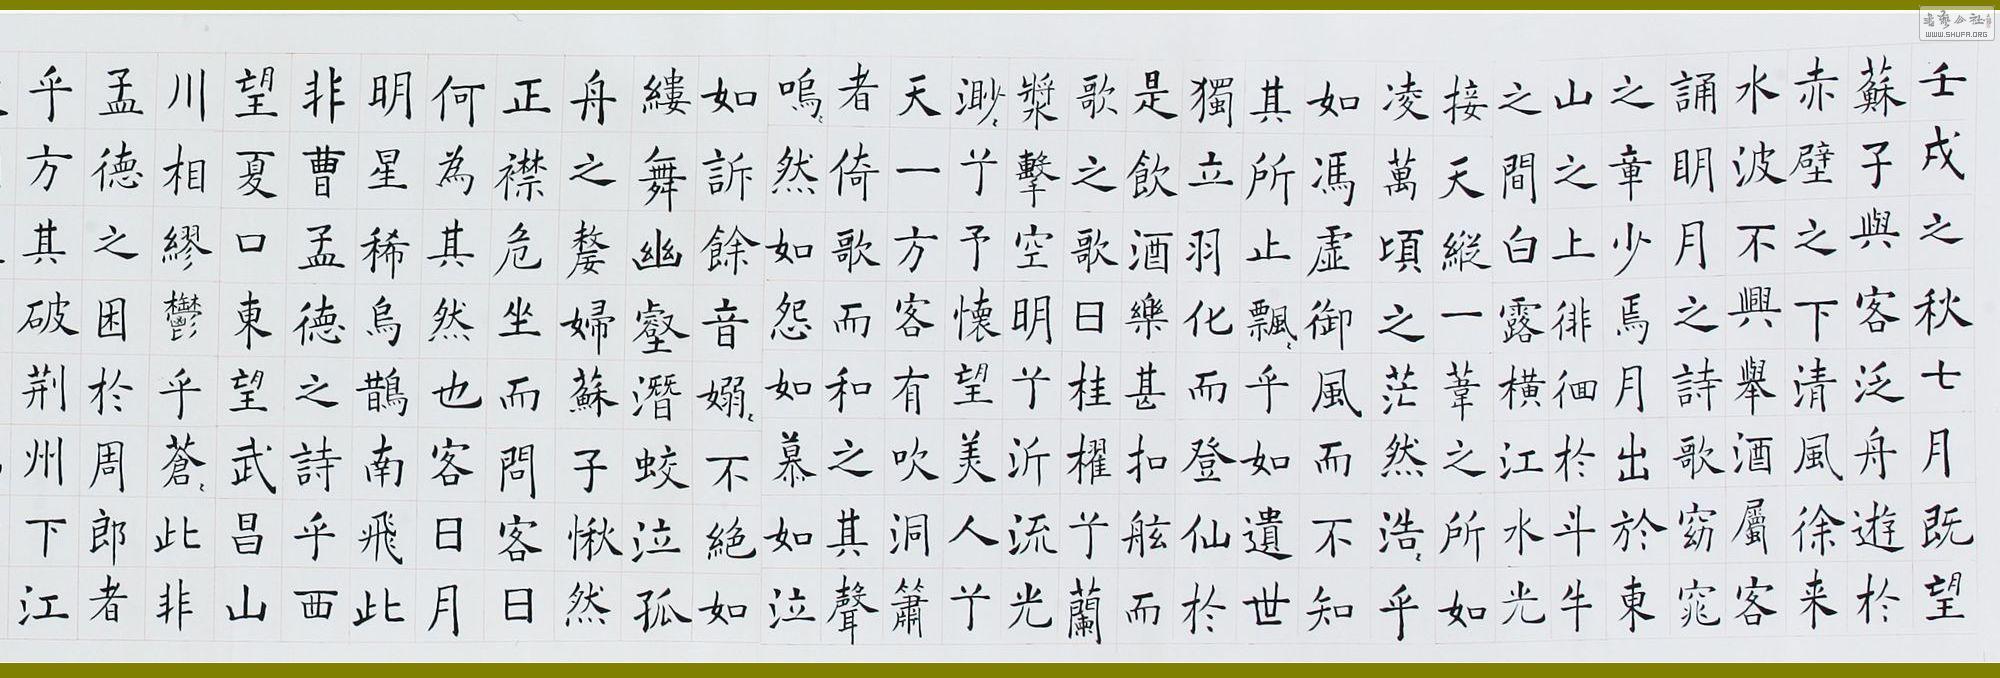 壬戌之秋七月既望
蘇子與客泛舟遊於
赤壁之下清風徐来
水波不興舉酒屬客
誦明月之詩歌窈窕
之章少焉月出於東
山之上徘徊於斗牛
之間白露橫江水光
接天縱一葦之所如
凌萬頃之茫然浩〻乎
如馮虛御風而不知
其所止飄〻乎如遺世
獨立羽化而登仙於
是飲酒樂甚扣舷而
歌之歌曰桂櫂兮蘭
槳擊空明兮泝流光
渺〻兮予懷望美人兮
天一方客有吹洞簫
者倚歌而和之其聲
嗚〻然如怨如慕如泣
如訴餘音嫋〻不絕如
縷舞幽壑潛蛟泣孤
舟之嫠婦蘇子愀然
正襟危坐而問客曰
何為其然也客曰月
明星稀烏鵲南飛此
非曹孟德之詩乎西
望夏口東望武昌山
川相繆鬱乎蒼〻此非
孟德之困於周郎者
乎方其破荊州下江
WWW.SHUFA.ORG